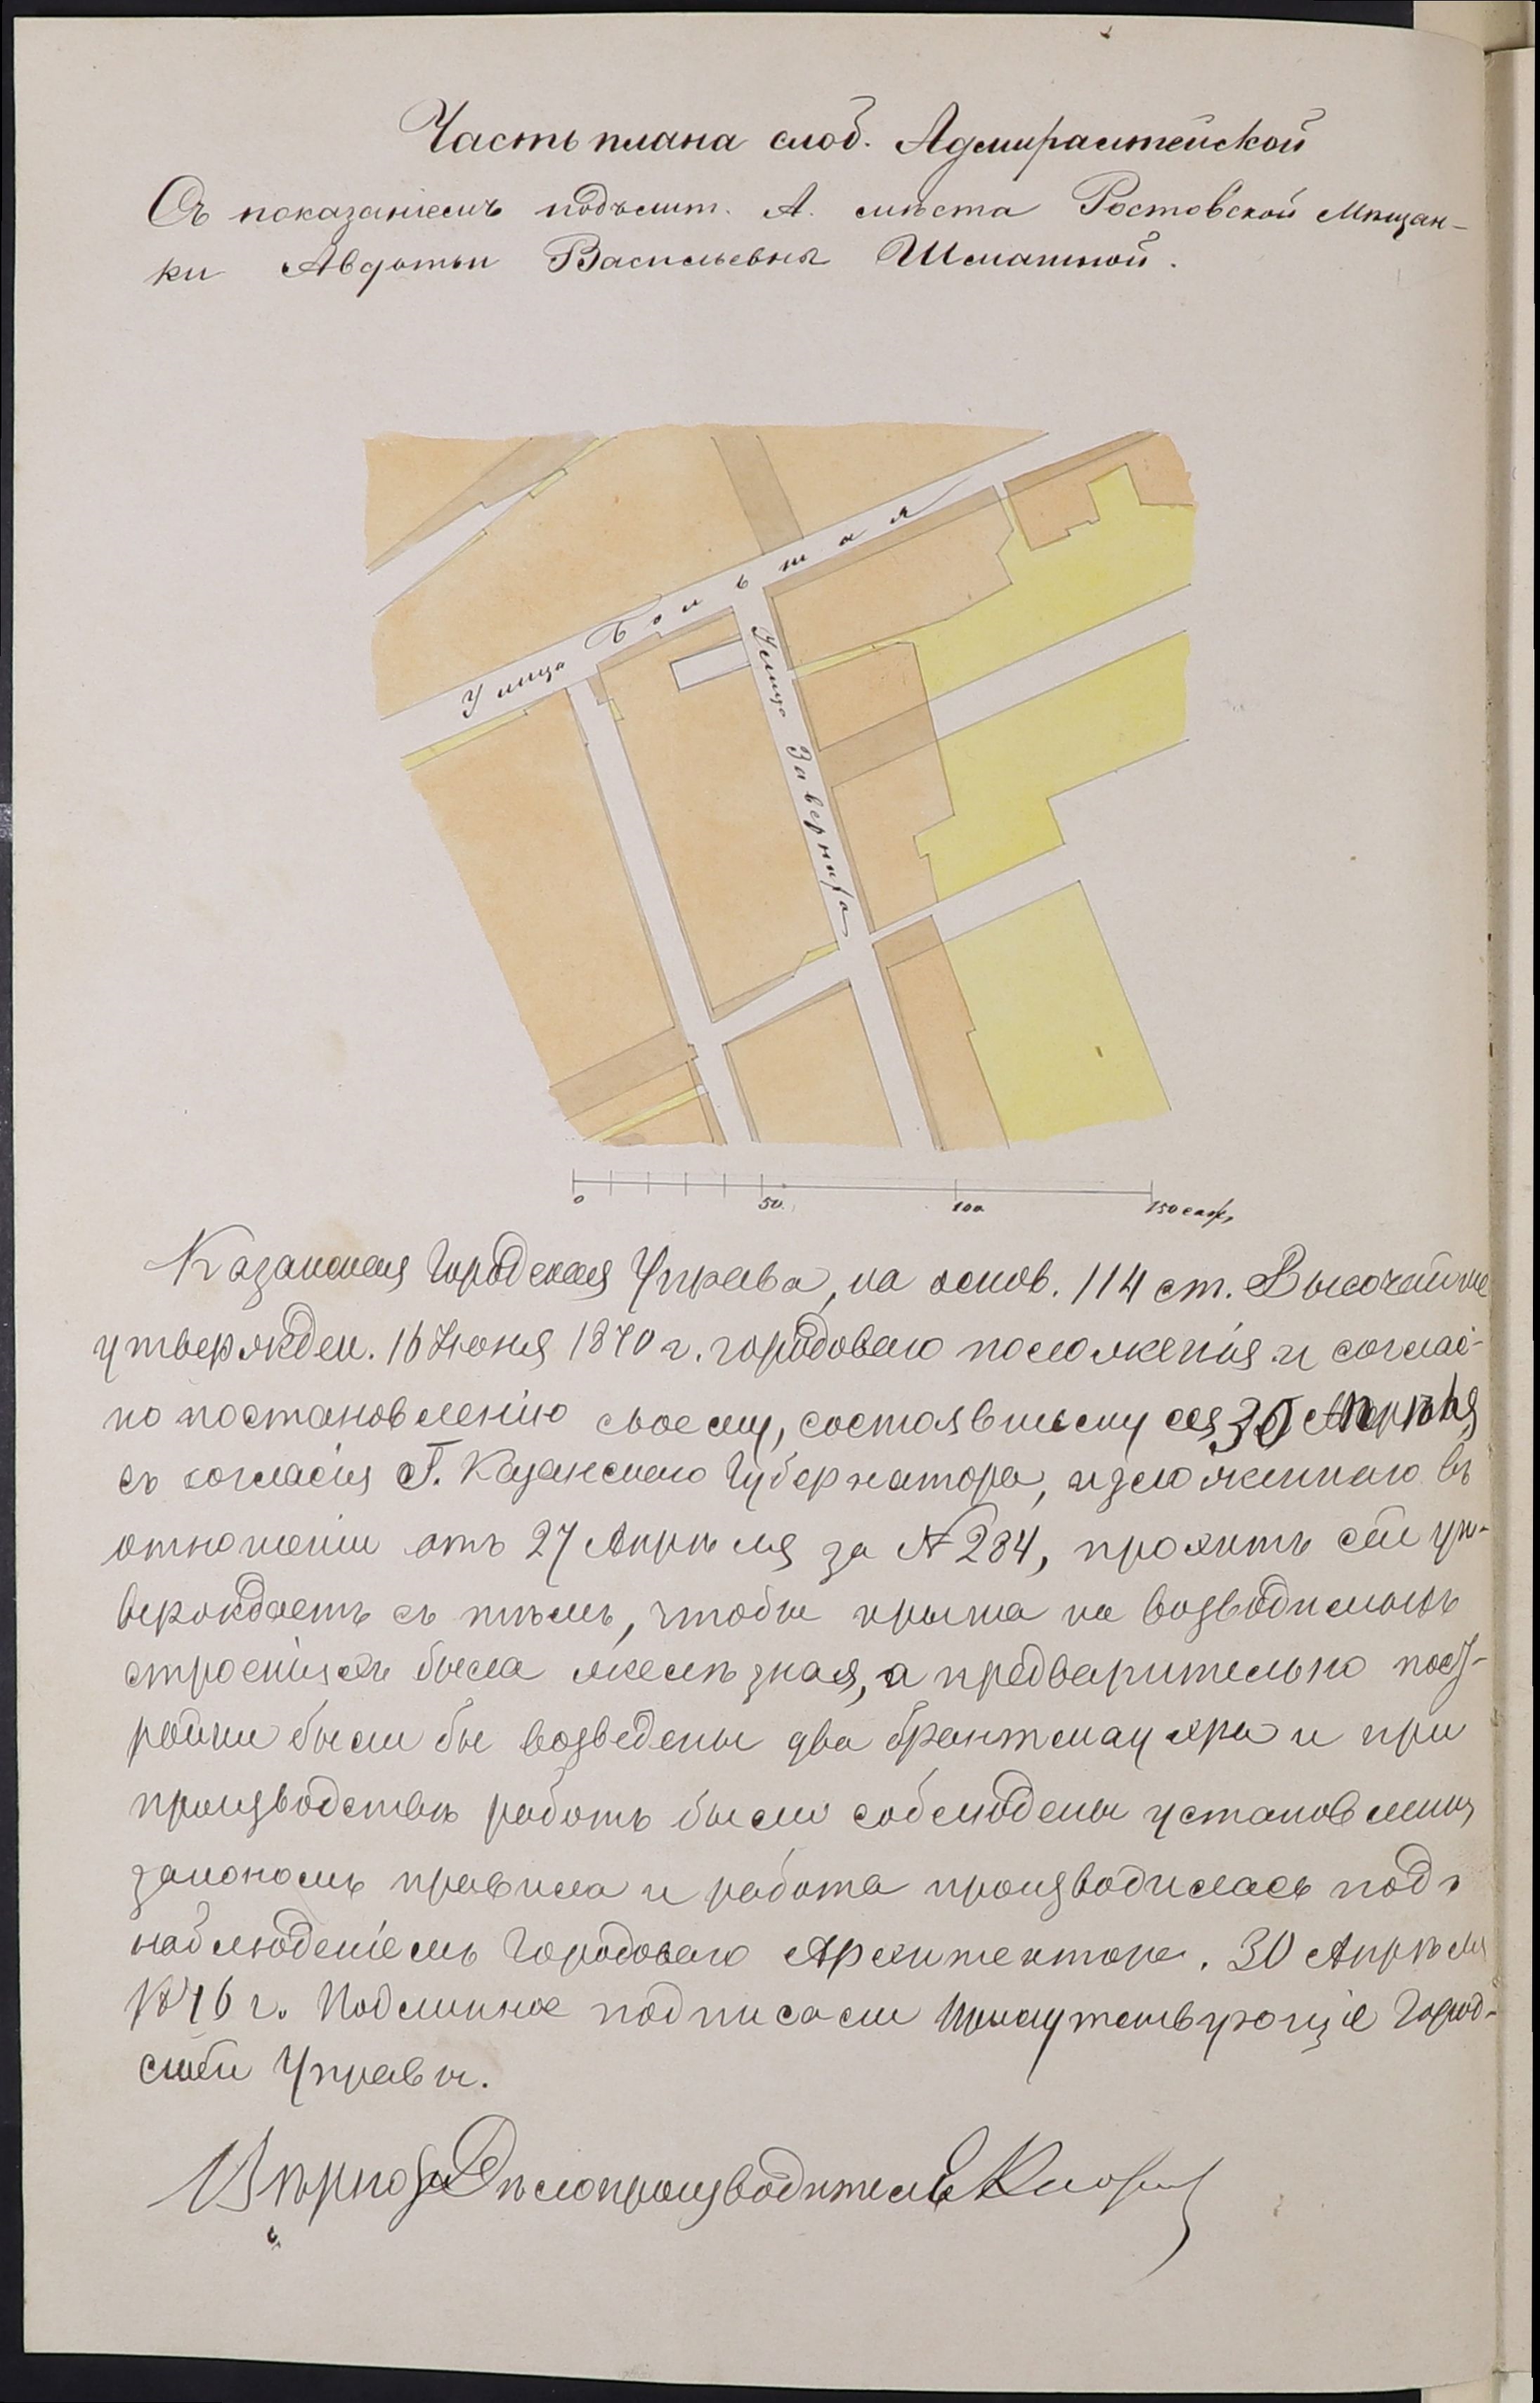 Часть плана слоб. Адмиралтейской
Съ показаніемъ подъ лит. А. мѣста Ростовской Мѣщан-
ки Авдотьи Васильевны
Улица Большая
Улица Завернира
0 50 100 150 саж,
Казанская Городская Управа, на основ. 114 ст. Высочайше
утвержден. 16 Іюня 1870 г. городоваго положенія и соглас-
но постановленію своему, состоявшемуся 30 Апрѣля
съ согласія Г. Казанскаго Губернатора, изложеннаго въ
отношеніи отъ 27 Апрѣля за № 284, проэктъ сей ут-
верждаетъ съ тѣмъ, чтобы крыша на возводимыхъ
строеніяхъ была желѣзная, а предварительно пост-
ройки были бы возведены два брантмауера и при
производствѣ работъ были соблюдены установленныя
закономъ правила и работа производилась подъ
наблюденіемъ Городоваго Архитектора. 30 Апрѣля
1876 г. Подлинное подписали Присутствующіе Город-
ской Управы.
Вѣрно: Дѣлопроизводитель